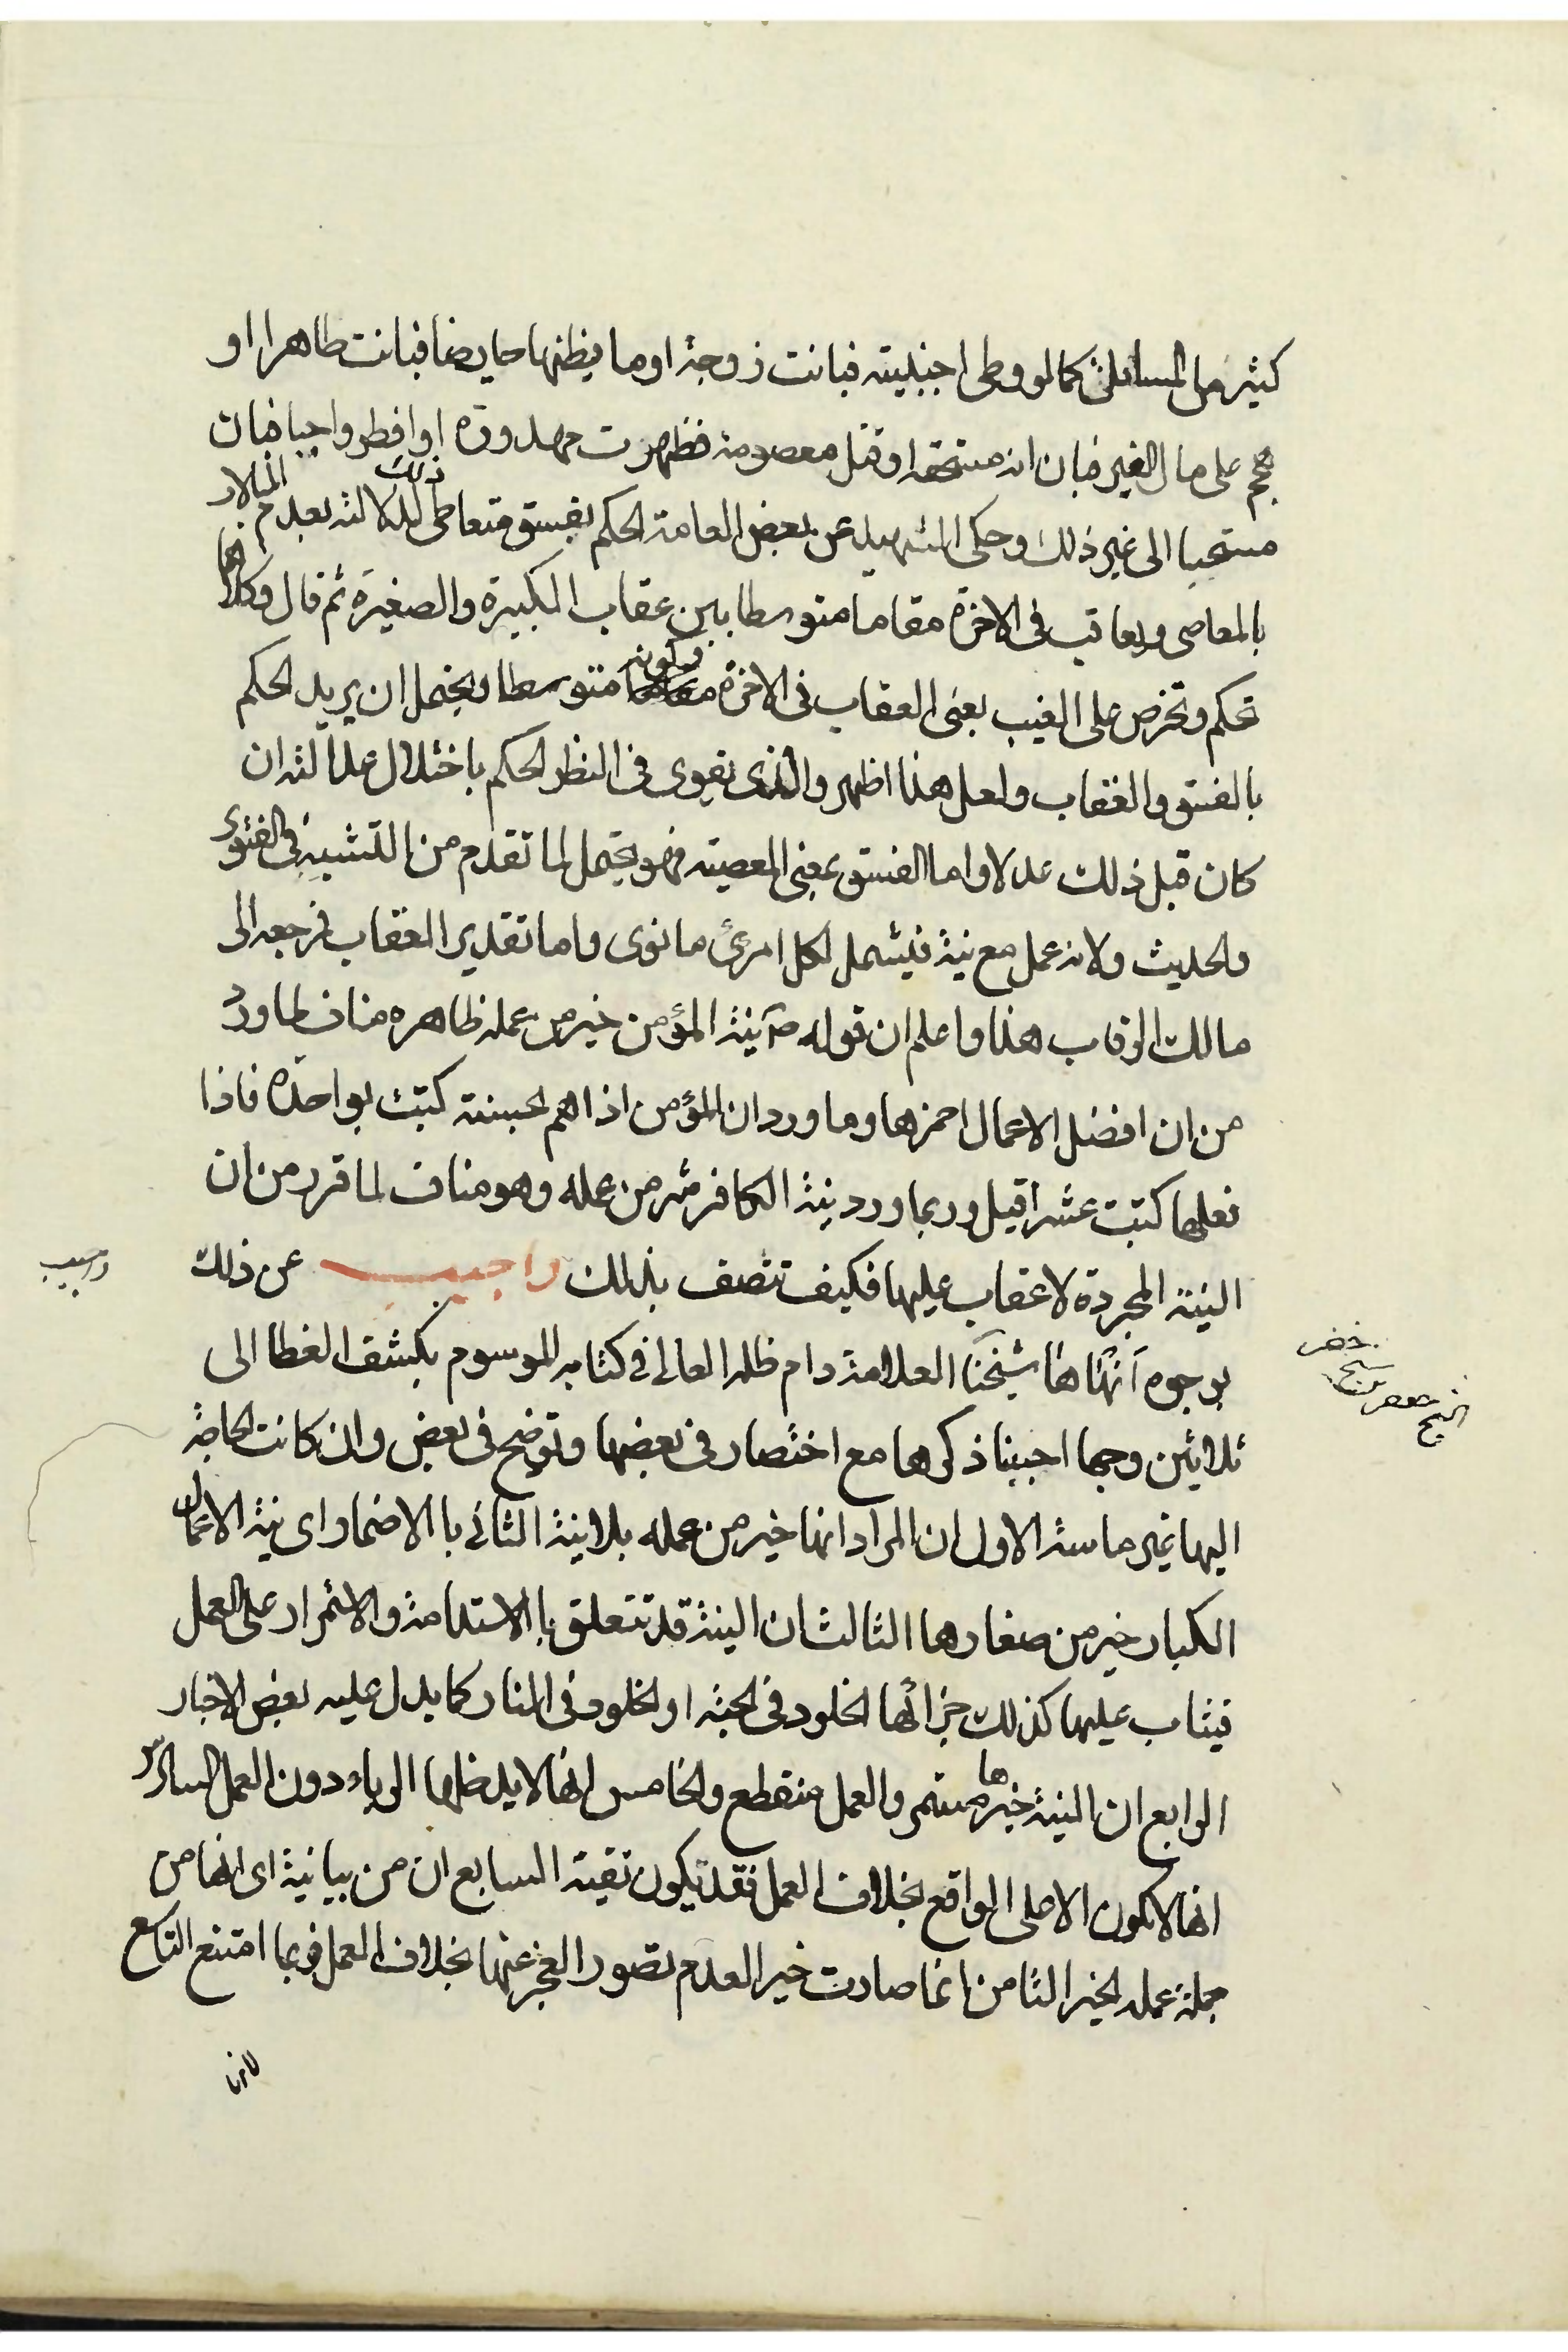 كثير من المسائل كما لو وطى اجنبية فبانت زوجة او ما يظنها حايضا فبانت طاهرا او
هجم على مال الغير فبان انه مستحقه او قتل معصومة فظهرت مهدورة او افطر واجبا فبان
مستحبا الى غير ذلك وحكى الشهيد عن بعض العامة الحكم بفسق متعاطى ذلك لدلالته بعدم المبالات
بالمعاصى ويعاقب فى الاخرة مقاما متوسطا بين عقاب الكبيرة والصغيرة ثم قال وكلاهما
تحكم وتخرص على الغيب يعنى العقاب فى الاخرة وكونه متوسطا ويحتمل ان يريد الحكم
بالفسق والعقاب ولعل هذا اظهر والذى يقوى فى النظر الحكم باختلال عدالته ان
كان قبل ذلك عدلا واما الفسق بمعنى المعصية فهو يحتمل لما تقدم من التشبيه فى الفتوى
والحديث ولانه عمل مع نية فيشمل لكل امرئ ما نوى واما تقدير العقاب فمرجعه الى
مالك الرقاب هذا واعلم ان قوله ص نية المؤمن خير من عمله ظاهره مناف لما ورد
من ان افضل الاعمال احمزها وما ورد ان المؤمن اذا هم بحسنة كتبت بواحدة فاذا
فعلها كتبت عشرا قيل وربما ورد نية الكافر شر من عمله وهو مناف لما قرر من ان
النية المجردة لا عقاب عليها فكيف تتصف بذلك واجيب عن ذلك
واجيب
بوجوه انهاها شيخنا العلامة دام ظله العالى فى كتابه الموسوم بكشف الغطا الى
الشيخ جعفر بن شيخ خضر
ثلاثين وجها احببنا ذكرها مع اختصار فى بعضها وتوضيح فى بعض وان كانت الحاجة
اليها غير ماسة الاول ان المراد انها خير من عمله بلا نية الثانى باالاضمار اى نية الاعمال
الكبار خير من صغارها الثالث ان النية قد تتعلق باالاستدامة والاستمرار على العمل
فيثاب عليها كذلك جزائها الخلود فى الجنة او الخلود فى النار كما يدل عليه بعض الاخبار
الرابع ان النية خيرها مستمر والعمل منقطع والخامس انها لا يدخلها الرياء دون العمل السادس
انها لا تكون الا على الواقع بخلاف العمل فقد يكون تقية السابع ان من بيانية اى انها من
جملة عمله الخير الثامن انما صارت خير العدم تصور العجز عنها بخلاف العمل فربما امتنع التاسع
لانها